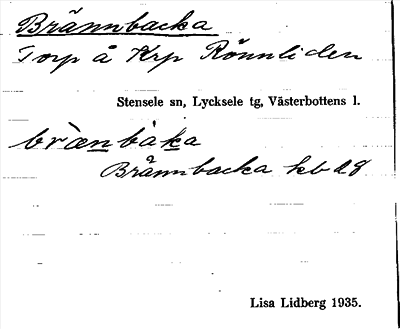 Brännbacka
Torp å Krp Rönnliden
Stensele sn, Lycksele tg, Västerbottens l.
bræ̀nbàka
Brånnbacka kbd 8
Lisa Lidberg 1935.